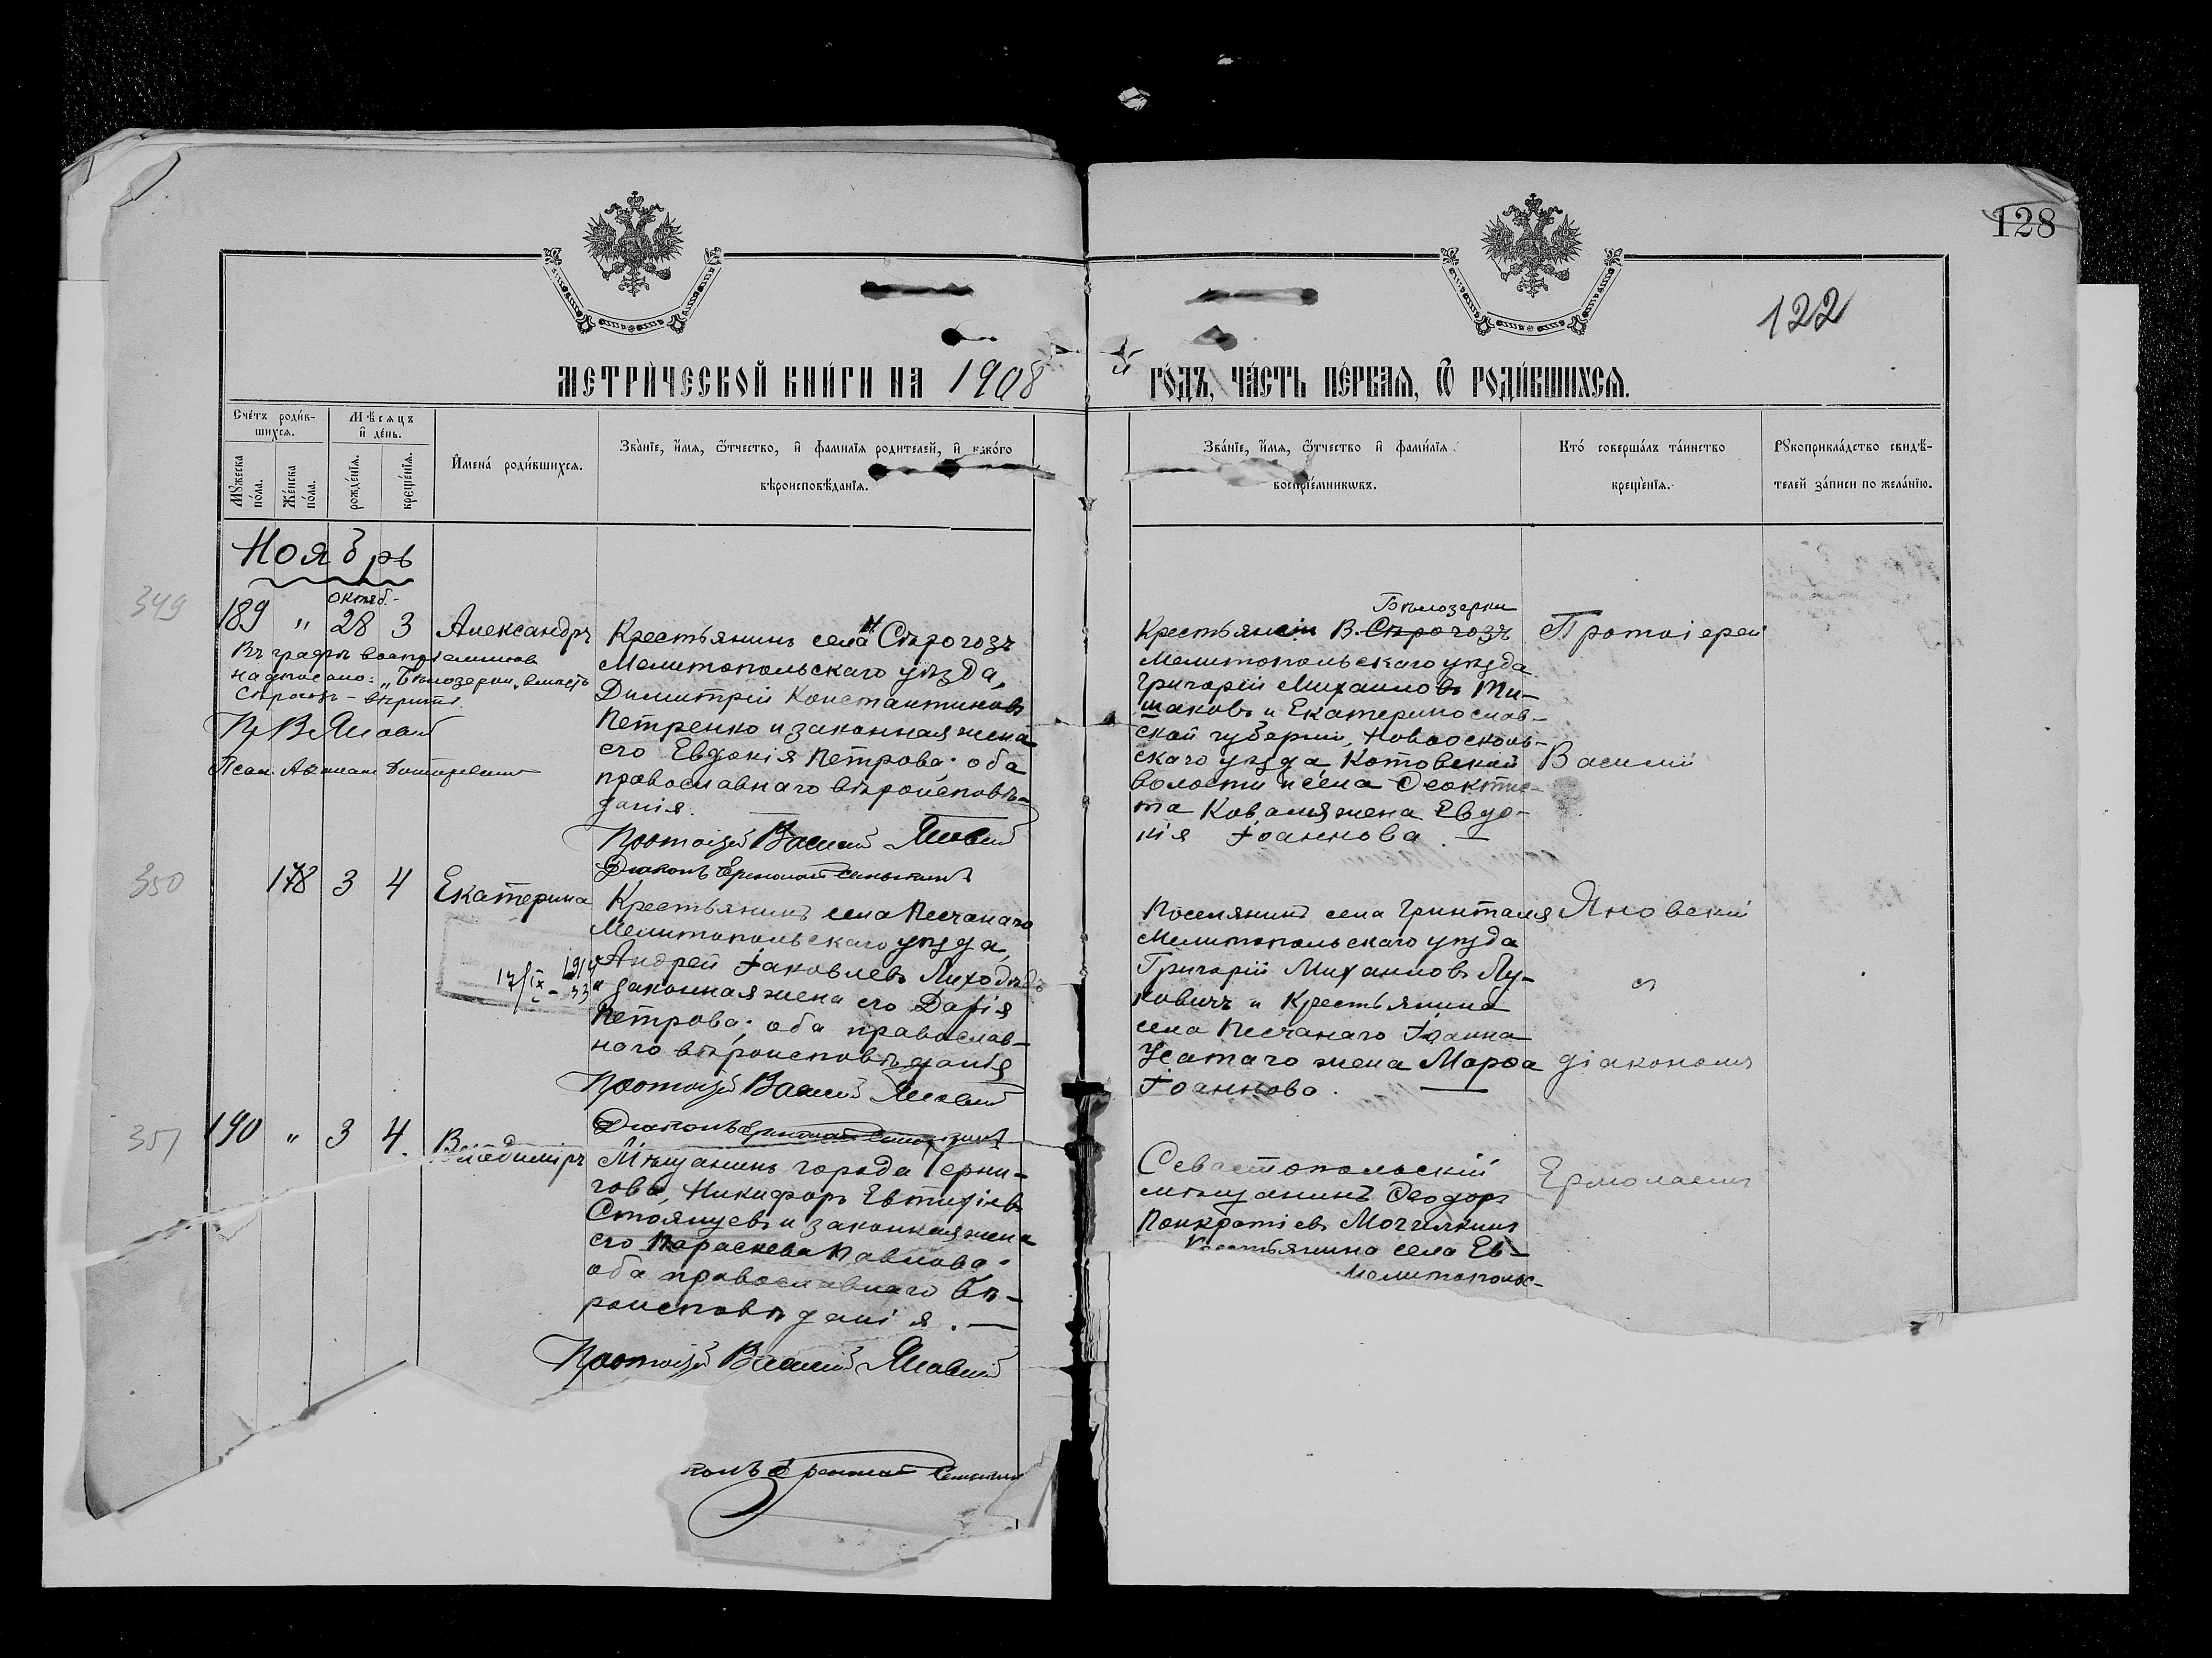 128
122
МЕТРИЧЕСКОЙ КНИГИ НА 1908 ГОДЪ, ЧАСТЬ ПЕРВАЯ, Ѿ РОДИВШИХСЯ.
Счетъ родив-
шихся.
Мѣсяцъ
и день.
Мужеска
пола.
Женска
пола.
рожденія.
крещенія.
Имена родившихся.
Званіе, имя, ѿтчество, и фамилія родителей, и какого
вѣроисповѣданія.
Званіе, имя, ѿтчество и фамилія
воспріемниковъ.
Кто совершалъ таинство
крещенія.
Рукоприкладство свидѣ-
телей записи по желанію.
Ноябрь
349
Октяб.
189 " 28 3 Александръ
Въ графѣ воспріемниковъ
надписано: "Бѣлозерки, вмѣсто
Сѣрогозъ - вѣрить.
Крестьянинъ села Н Сѣрогозъ
Мелитопольскаго уѣзда,
Димитрій Константиновъ
Петренко и законная жена
его Евдокія Петрова; оба
православнаго вѣроисповѣ-
данія.
Протоіерей Василій Яновскій
Діаконъ
Бѣлозерки
Крестьянин В. Сѣрогозъ
Мелитопольскаго уѣзда
Григорій Михаиловъ Ти-
шаковъ и Екатеринослав-
ской губерніи, Новооскольс-
скаго уѣзда Котовской
волости и села Ѳеоктис-
та Коваля жена Евдо-
кія Іоаннова. —
Протоіерей
Василій
350
178 3 4 Екатерина
Крестьянинъ села Песчанаго
Мелитопольскаго уѣзда,
Андрей Іаковлевъ Лиходѣдъ
и законная жена его Дарія
Петрова; оба православ-
наго вѣроисповѣданія
Протоіерей Василій Яновскій
Діаконъ
Поселянинъ села Гринталя
Мелитопольскаго уѣзда
Григорій Михаиловъ Лу-
ковичъ и Крестьянина
села Песчанаго Іоанна
Усатаго жена Марѳа
Іоаннова. —
Яновскій
съ
діакономъ
351
190 " 3 4. Владиміръ
Мѣщанинъ города Черни-
гова, Никифоръ Евтихіевъ
Стоянцевъ и законная жена
его Параскева Павлова;
оба православнаго вѣ-
роисповѣданія. —
Протоіерей Василій Яновскій
Севастопольскій
мѣщанинъ Ѳеодоръ
Панкратіевъ Могилкинъ
Крестьянина села Ев-
Мелитопольс-
Ермолаемъ